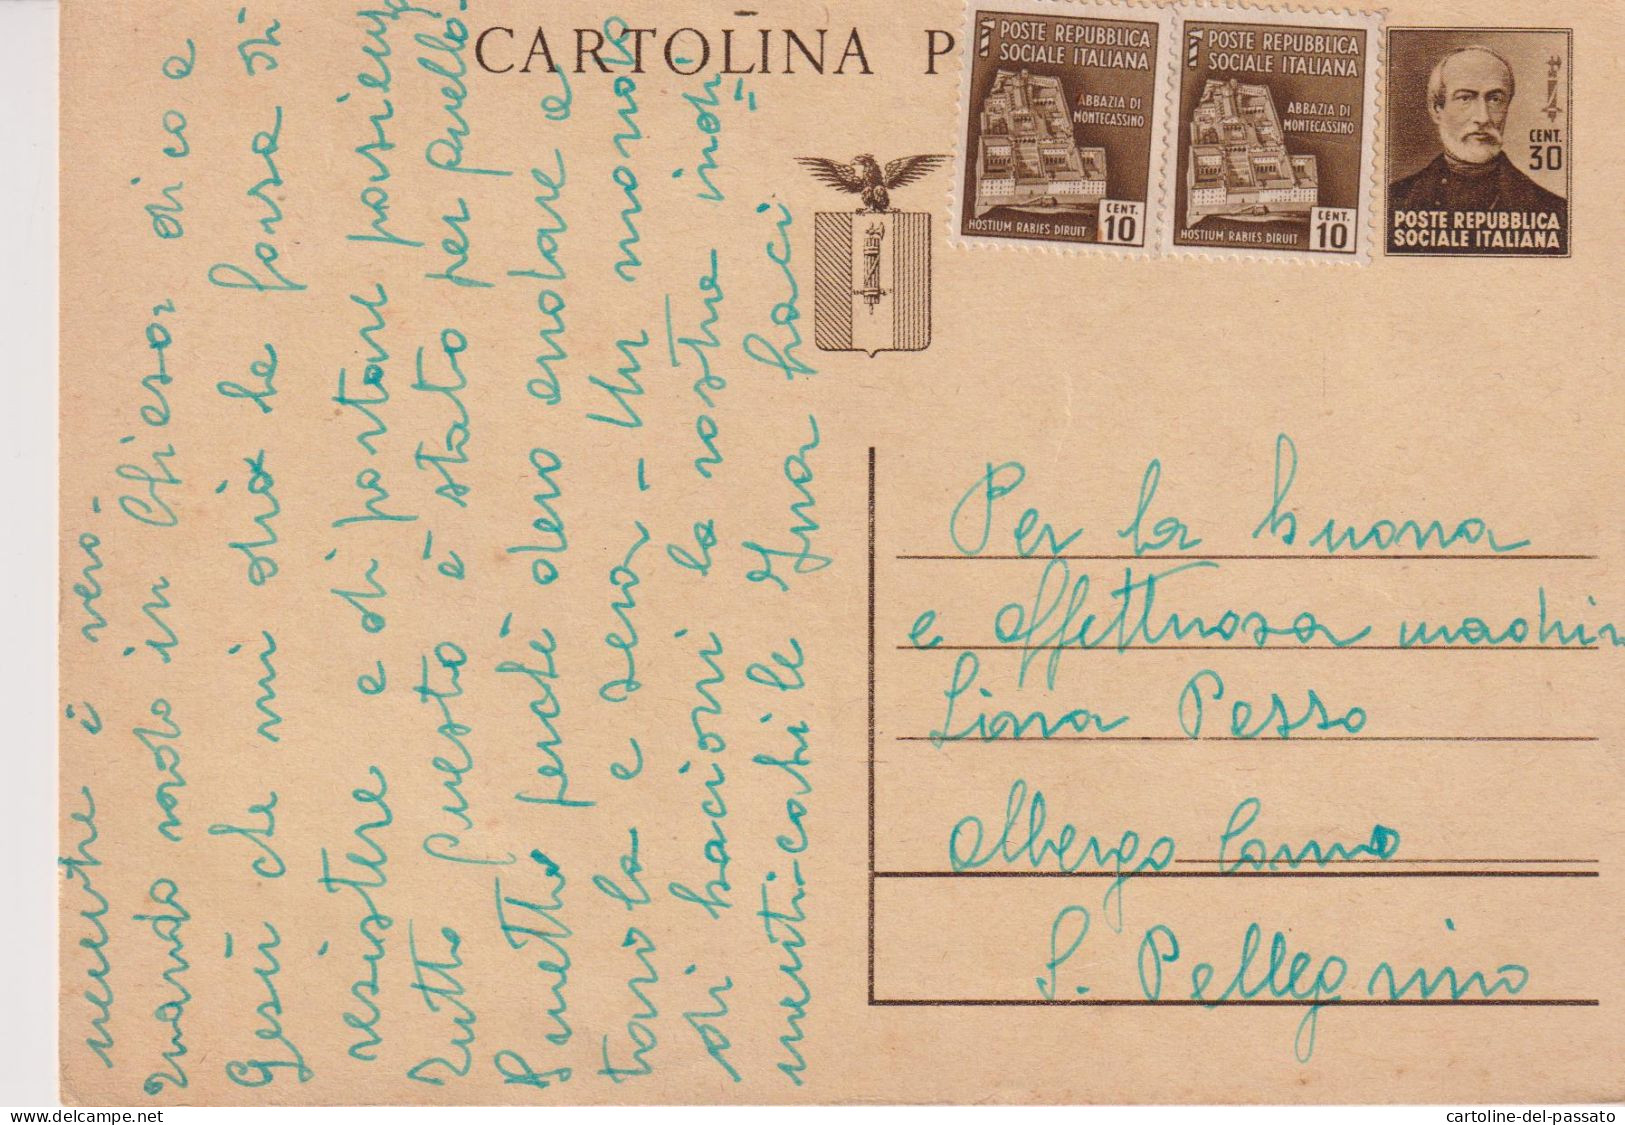 CARTOLINA P
POSTE REPUBBLICA
SOCIALE ITALIANA
ABBAZIA DI
MONTECASSINO
HOSTIUM RABIES DIRUIT
CENT.
10
POSTE REPUBBLICA
SOCIALE ITALIANA
ABBAZIA DI
MONTECASSINO
HOSTIUM RABIES DIRUIT
CENT.
10
CENT.
30
POSTE REPUBBLICA
SOCIALE ITALIANA
Per la buona
e affettuosa
Lina Pesso
Albergo
S. Pellegrino
è vero.
quando vado in Chiesa dico a
Gesù che mi dia la forza di
resistere e di portare
Tutto questo è stato per quello
perchè devo andare a
tavola e sera - Un mondo
di bacioni la vostra indi
menticabile baci
delcampe.net
cartoline-del-passato